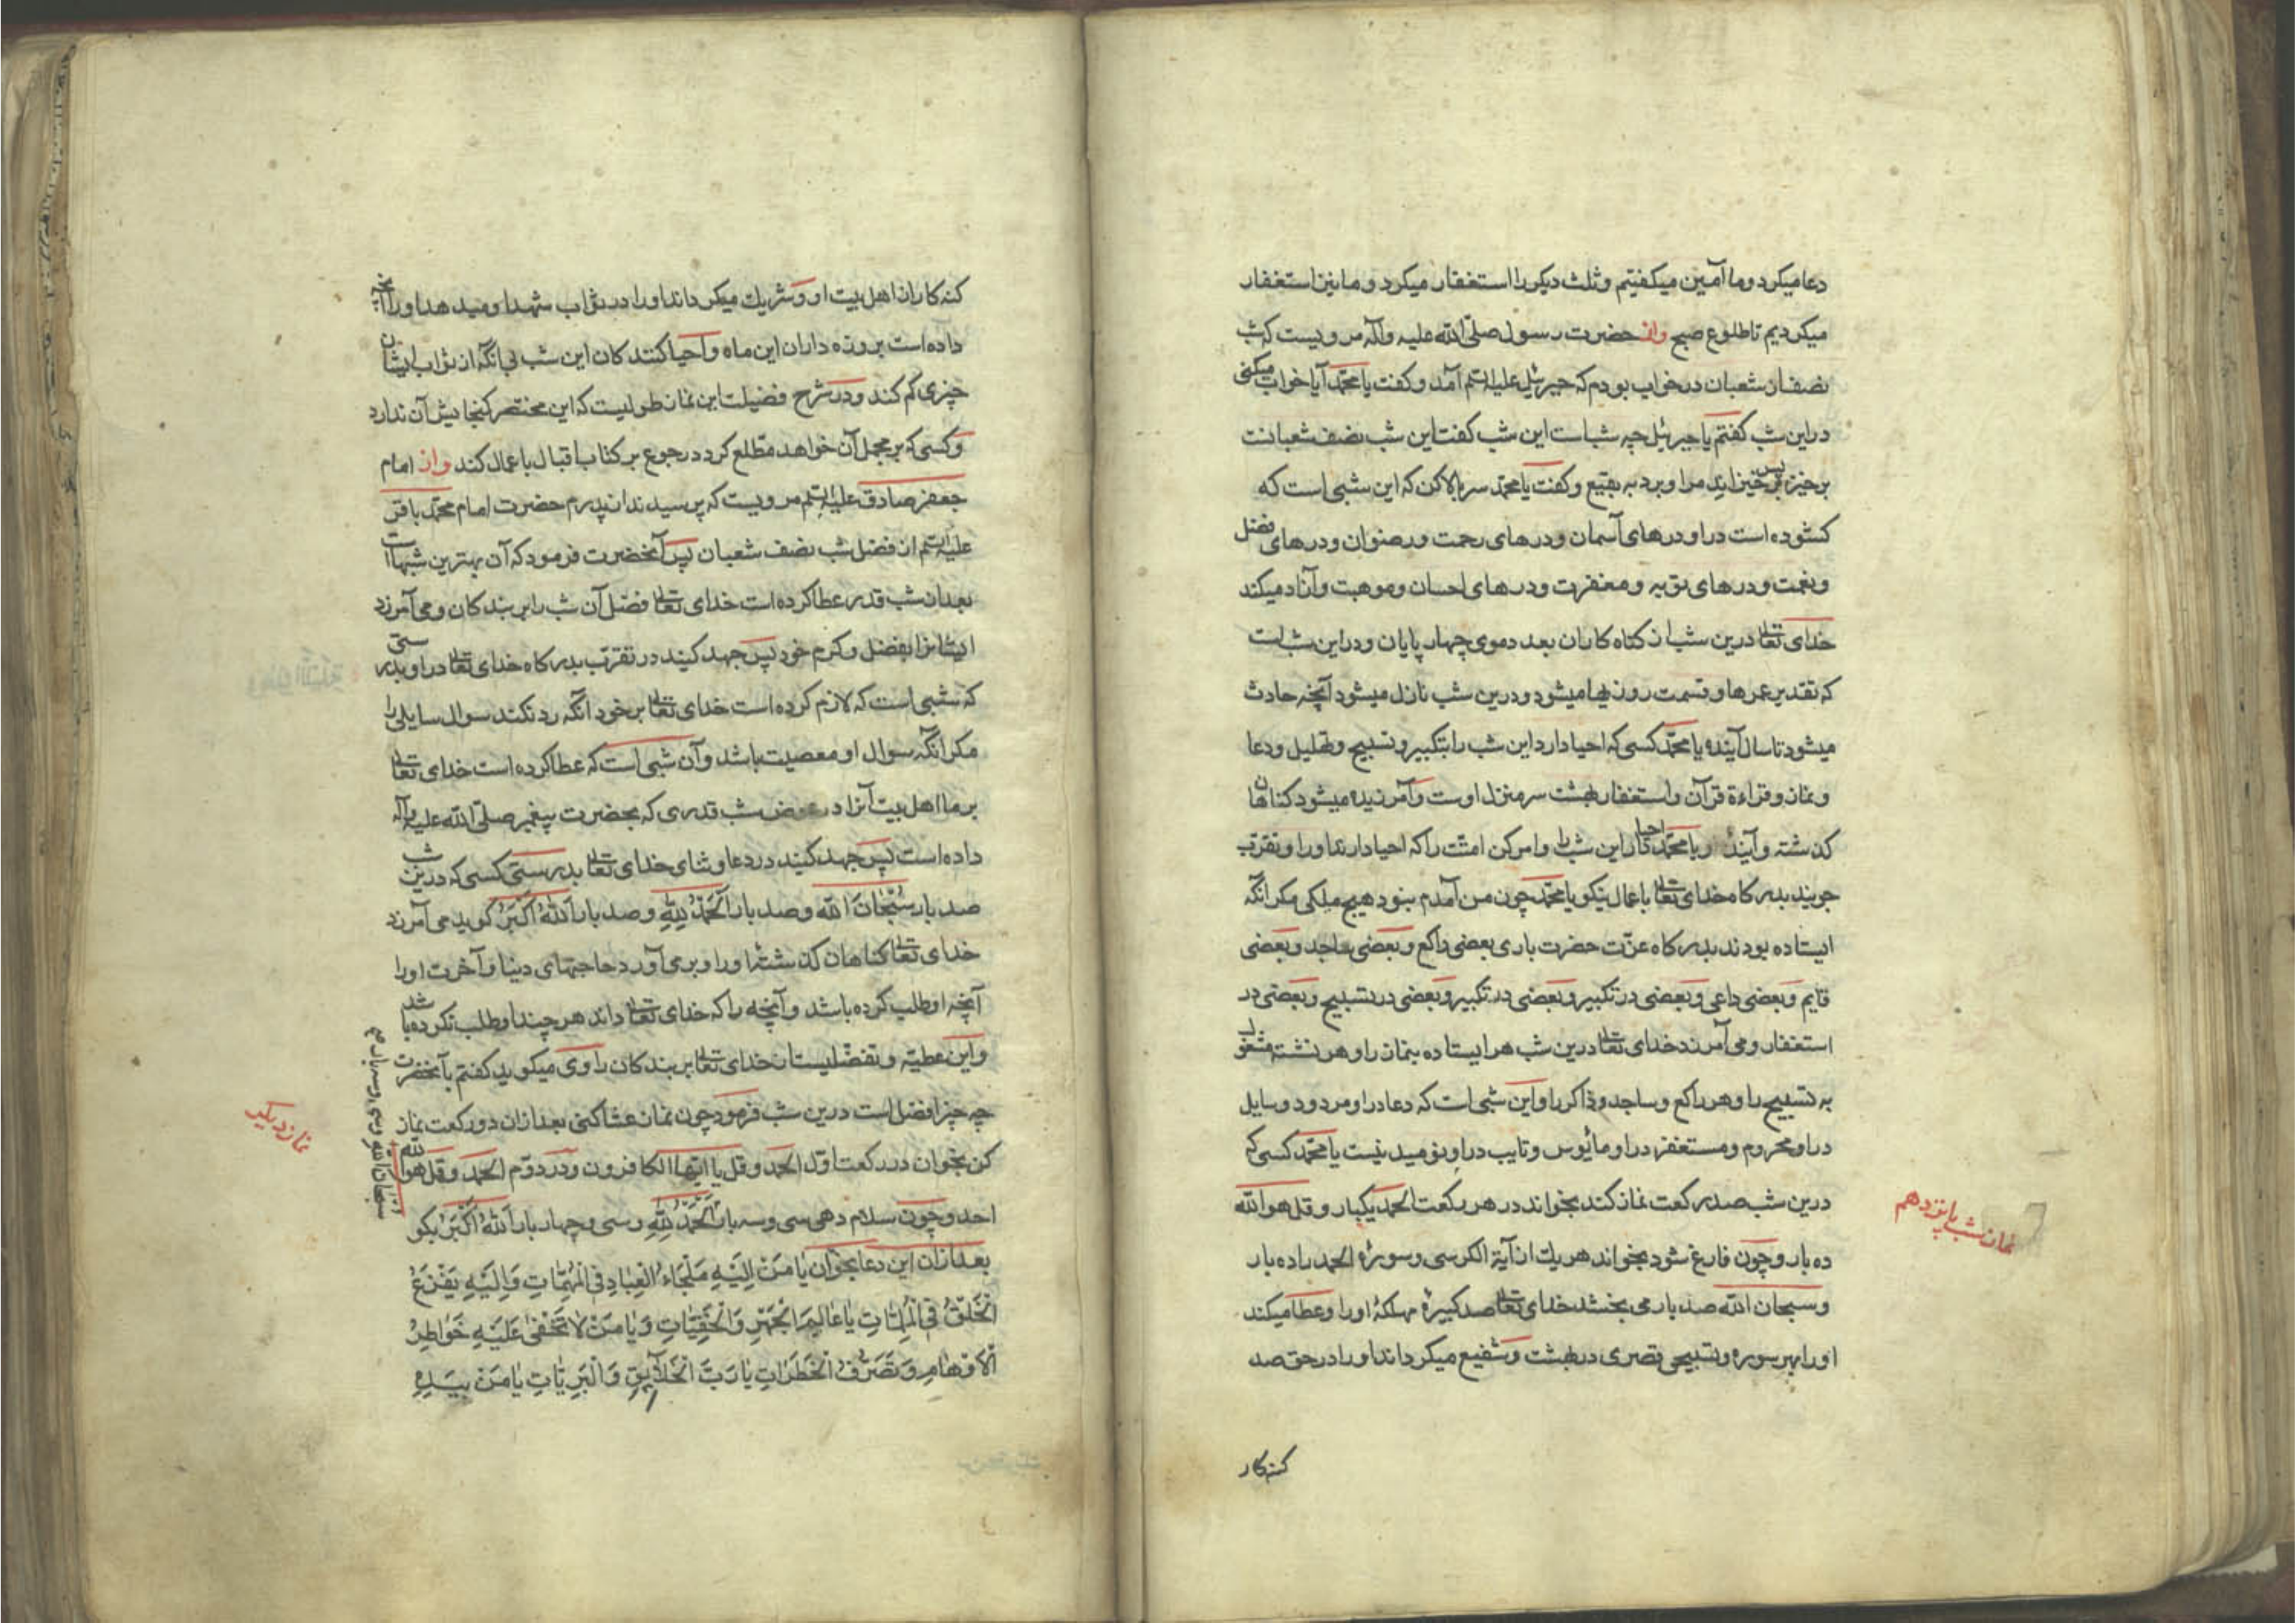 دعا میکرد و ما آمین میکفتیم و ثلث دیکر را استغفار میکرد و ما نیز استغفار
میکردیم تا طلوع صبح واز حضرت رسول صلی الله علیه وآله مرویست که شب
نصف از شعبان در خواب بودم که جبرئیل علیه السلم آمد و کفت یا محمد آیا خواب میکنی
در این شب کفتم یا جبرئیل چه شب است این شب کفت این شب نصف شعبانست
برخیز پس برخیزانید مرا و برد به بقیع و کفت یا محمد سر بالا کن که این شبی است که
کشوده است در او درهای آسمان و درهای رحمت و رضوان و درهای فضل
و نعمت و درهای توبه و مغفرت و درهای احسان و موهبت و آزاد میکند
خدای تعالی درین شب از کناه کاران بعدد موی چهار پایان و در این شب است
که تقدیر عمرها و قسمت روزیها میشود و درین شب نازل میشود آنچه حادث
میشود تا سال آینده یا محمد کسی که احیا دارد این شب را بتکبیر و تسبیح و تهلیل و دعا
و نماز و قراءة قرآن و استغفار بهشت سرمنزل اوست و آمرزیده میشود کناهان
کذشته و آینده یا محمد احیا دار این شب را و امر کن امتت را که احیا دارند او را و تقرب
جویند بدرکاه خدای تعالی باعمال نیکو یا محمد چون من آمدم نبود هیچ ملکی مکر انکه
ایستاده بودند بدرکاه عزت حضرت باری بعضی راکع و بعضی ساجد و بعضی
قایم و بعضی داعی و بعضی در تکبیر و بعضی در تکبیر و بعضی در تسبیح و بعضی در
استغفار و می آمرزد خدای تعالی درین شب هر ایستاده بنماز را و هر نشسته مشغول
به تسبیح را و هر راکع و ساجد و ذاکر را و این شبی است که دعا در او مردود و سایل
در او محروم و مستغفر در او مأیوس و تایب در او نومید نیست یا محمد کسی که
درین شب صد رکعت نماز کند بخواند در هر رکعت الحمد یکبار و قل هو الله
نماز شب پانزدهم
ده بار و چون فارغ شود بخواند هر یك از آیة الکرسی و سورهٔ الحمد را ده بار
و سبحان الله صد بار می بخشد خدای تعالی صد کبیرهٔ مهلکهٔ او را و عطا میکند
او را بهر سوره و تسبیحی قصری در بهشت و شفیع میکرداند او را در حق صد
کنه کار
کنه کار از اهل بیت او و شریك میکرداند او را در ثواب شهدا و میدهد او را آنچه
داده است بروزه داران این ماه و احیا کنندکان این شب بی انکه از ثواب ایشان
چیزی کم کند و در شرح فضیلت این نماز طولیست که این مختصر کنجایش آن ندارد
و کسی که بر مجمل آن خواهد مطلع کردد رجوع بر کتاب اقبال باعمال کند واز امام
جعفر صادق علیه السلم مرویست که پرسیدند از پدرم حضرت امام محمد باقر
علیه السلم از فضل شب نصف شعبان پس آنحضرت فرمود که آن بهترین شبهاست
بعد از شب قدر عطا کرده است خدای تعالی فضل آن شب را بر بندکان و می آمرزد
ایشانرا بفضل و کرم خود پس جهد کنید در تقرب بدرکاه خدای تعالی در او بدرستی
که شبی است که لازم کرده است خدای تعالی بر خود انکه رد نکند سوال سایلی را
مکر انکه سوال او معصیت باشد و آن شبی است که عطا کرده است خدای تعالی
بر ما اهل بیت آنرا در عوض شب قدری که بحضرت پیغمبر صلی الله علیه وآله
داده است پس جهد کنید در دعا و ثنای خدای تعالی بدرستی کسی که درین شب
صد بار سُبْحَانَ الله و صد بار اَلْحَمْدُ لِلّهِ و صد بار اَللهُ اَکْبَرُ کوید می آمرزد
خدای تعالی کناهان کذشتهٔ او را و برمی آورد حاجتهای دنیا و آخرت او را
آنچه او طلب کرده باشد و آنچه را که خدای تعالی داند هر چند او طلب نکرده باشد
و این عطیه و تفضلیست از خدای تعالی بر بندکان راوی میکوید کفتم بآنحضرت
چه چیز افضل است درین شب فرمود چون نماز عشا کنی بعد از ان دو رکعت نماز
نماز دیکر
کن بخوان در رکعت اول الحمد و قل یا ایها الکافرون و در دوم الحمد و قل هو الله
احد و چون سلام دهی سی و سه بار اَلْحَمْدُ لِلّهِ و سی و چهار بار اَللهُ اَکْبَرُ بکو
سبحان الله و سی و سه بار صح
بعد از ان این دعا بخوان یَا مَنْ اِلَیْهِ مَلْجَاءُ الْعِبَادِ فِی الْمُهِمَّاتِ وَاِلَیْهِ یَفْزَعُ
الْخَلْقُ فِی الْمُلِمَّاتِ یَا عَالِمَ الْجَهْرِ وَالْخَفِیَّاتِ وَیَا مَنْ لَا تَخْفٰی عَلَیْهِ خَوَاطِرُ
الْاَوْهَامِ وَتَصَرُّفُ الْخَطَرَاتِ یَا رَبَّ الْخَلَآیِقِ وَالْبَرِیَّاتِ یَا مَنْ بِیَدِهِ